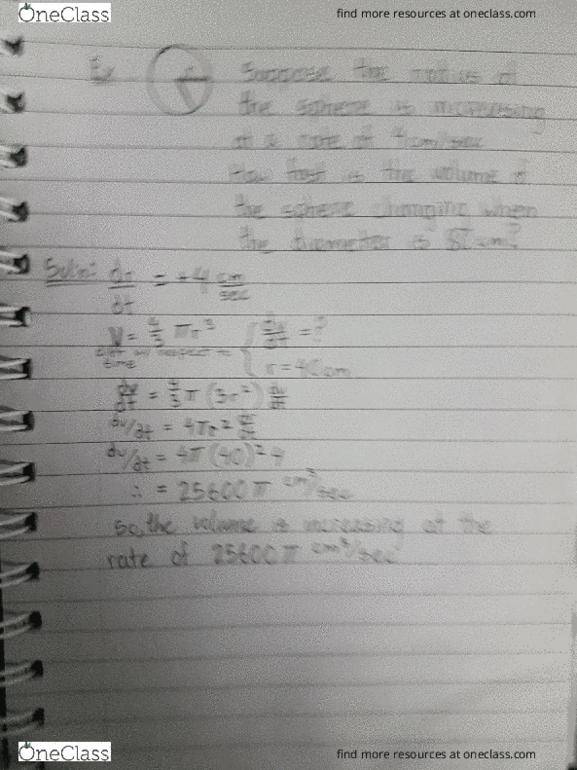 OneClass
find more resources at oneclass.com
Ex Suppose the radius of
the sphere is increasing
at a rate of 4cm/sec
How fast is the volume of
the sphere changing when
the diameter is 80 cm?
Soln: dr/dt = +4 cm/sec
V = 4/3 πr³ { dv/dt = ?
diff w/ respect to time r = 40cm
dv/dt = 4/3 π (3r²)
dv/dt = 4πr²
dv/dt = 4π(40)² 4
∴ = 25600π cm³/sec
so, the volume is increasing at the
rate of 25600π cm³/sec
OneClass
find more resources at oneclass.com